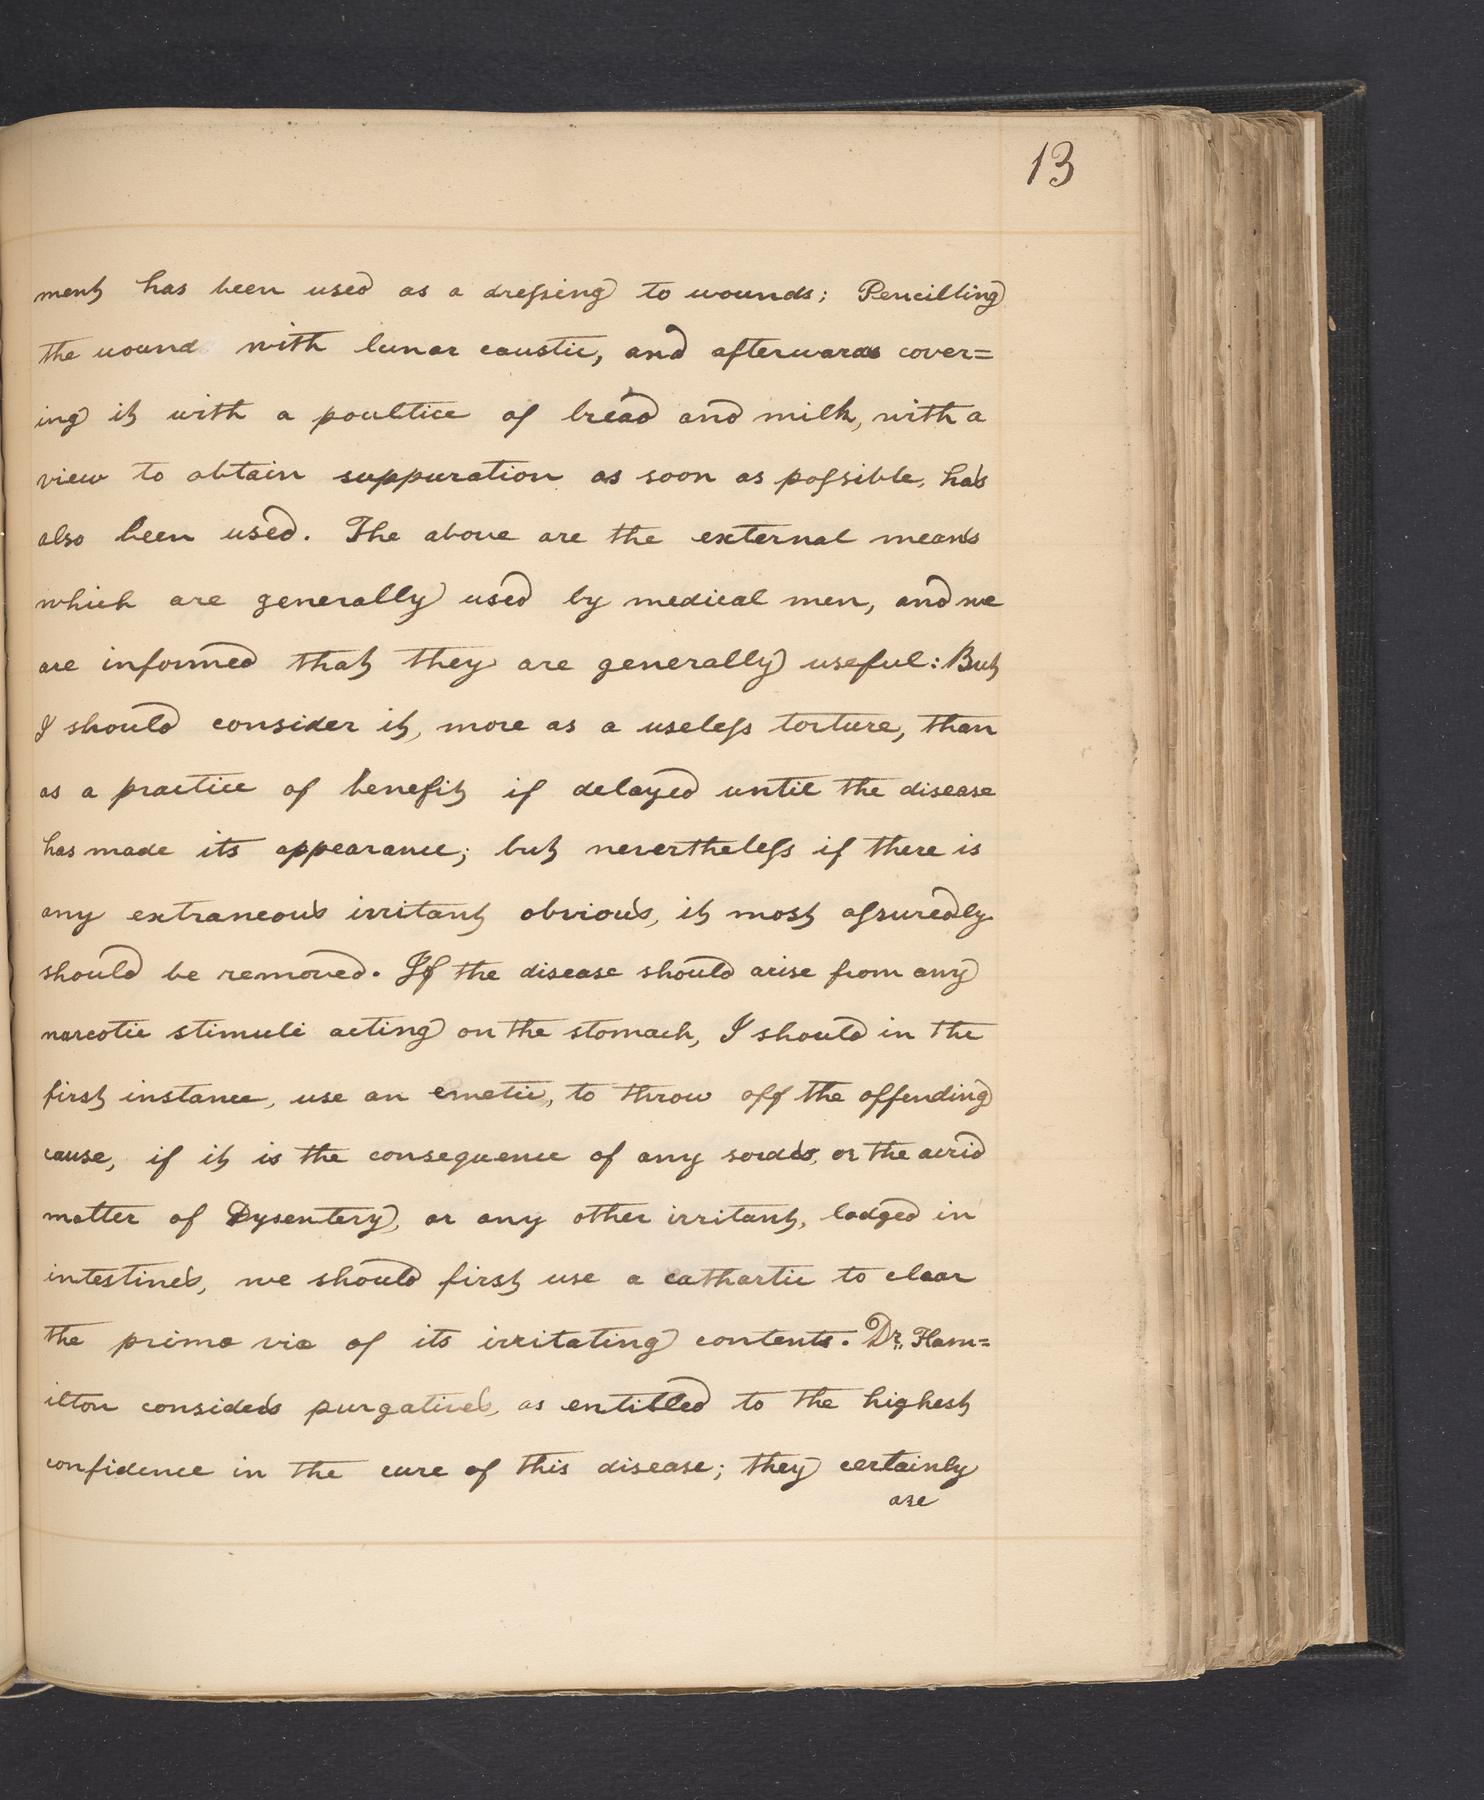 13
ment has been used as a dressing to wounds; Pencilling
the wound with lunar caustic, and afterwards cover=
ing it with a poultice of bread and milk, with a
view to obtain suppuration as soon as possible, has
also been used. The above are the external means
which are generally used by medical men, and we
are informed that they are generally useful: But
I should consider it, more as a useless torture, than
as a practice of benefit if delayed until the disease
has made its appearance; but nevertheless if there is
any extraneous irritant obvious, it most assuredly
should be removed. If the disease should arise from any
narcotic stimuli acting on the stomach, I should in the
first instance, use an emetic, to throw off the offending
cause, if it is the consequence of any sordes, or the acrid
matter of Dysentery, or any other irritant, lodged in
intestines, we should first use a cathartic to clear
the prima via of its irritating contents. Dr. Ham=
ilton considers purgatives, as entitled to the highest
confidence in the cure of this disease; they certainly
are